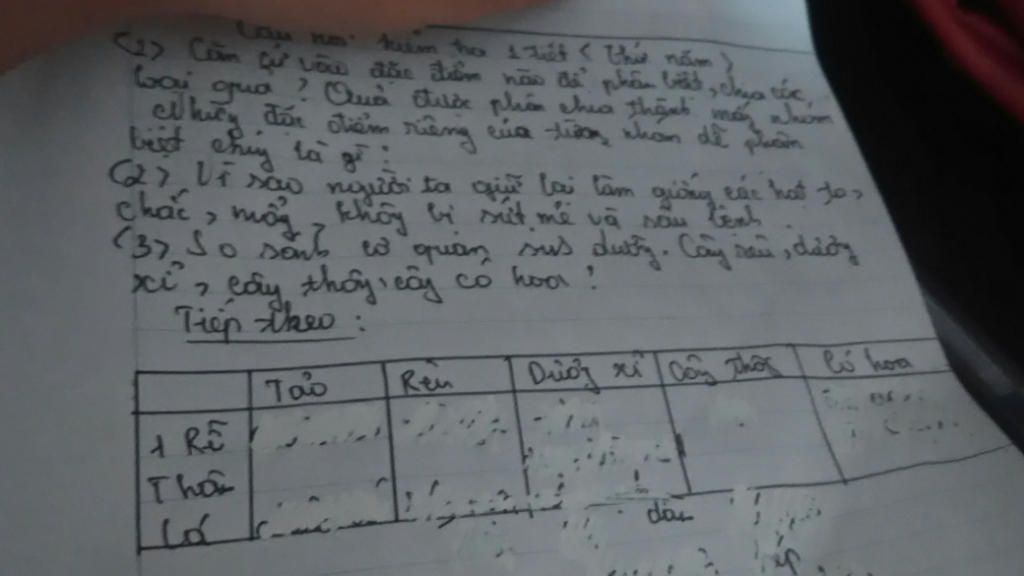 Câu hỏi kiểm tra 1 tiết (thứ năm)
(1) Căn cứ vào đặc điểm nào để phân biệt, chia các
loại quả? Quả được phân chia thành mấy nhóm
Những đặc điểm riêng của từng nhóm để phân
biệt chúng là gì?
(2) Vì sao người ta giữ lại làm giống các hạt to,
chắc, mẩy, không bị sứt mẻ và sâu bệnh
(3) So sánh cơ quan sinh dưỡng. Cây rêu, dương
xỉ, cây thông, cây có hoa!
Tiếp theo:
Tảo Rêu Dương xỉ Cây thông Có hoa
1 Rễ
Thân
Lá